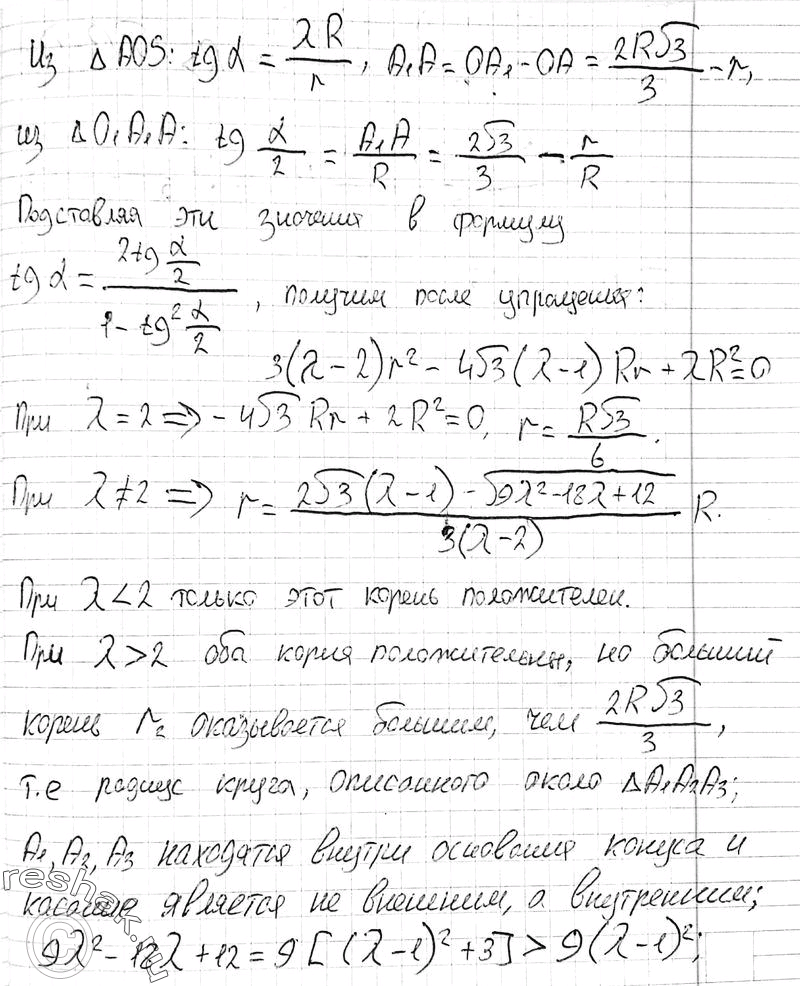 Из △AOS: tg α = λR/r, A₁A = OA₁ - OA = 2R√3/3 - r,
из △O₁A₁A: tg α/2 = A₁A/R = 2√3/3 - r/R
Подставляя эти значения в формулу
tg α = 2tg α/2 / (1 - tg² α/2), получим после упрощения:
3(λ-2)r² - 4√3(λ-1)Rr + λR² = 0
При λ = 2 => -4√3 Rr + 2R² = 0, r = R√3/6.
При λ ≠ 2 => r = (2√3(λ-1) - √(9λ²-18λ+12)) / 3(λ-2) R.
При λ < 2 только этот корень положителен.
При λ > 2 оба корня положительны, но больший
корень r₂ оказывается большим, чем 2R√3/3,
т.е радиус круга, описанного около △A₁A₂A₃;
A₁, A₂, A₃ находятся внутри основания конуса и
касание является не внешним, а внутренним;
9λ² - 18λ + 12 = 9[(λ-1)² + 3] > 9(λ-1)²;
reshak.ru
©